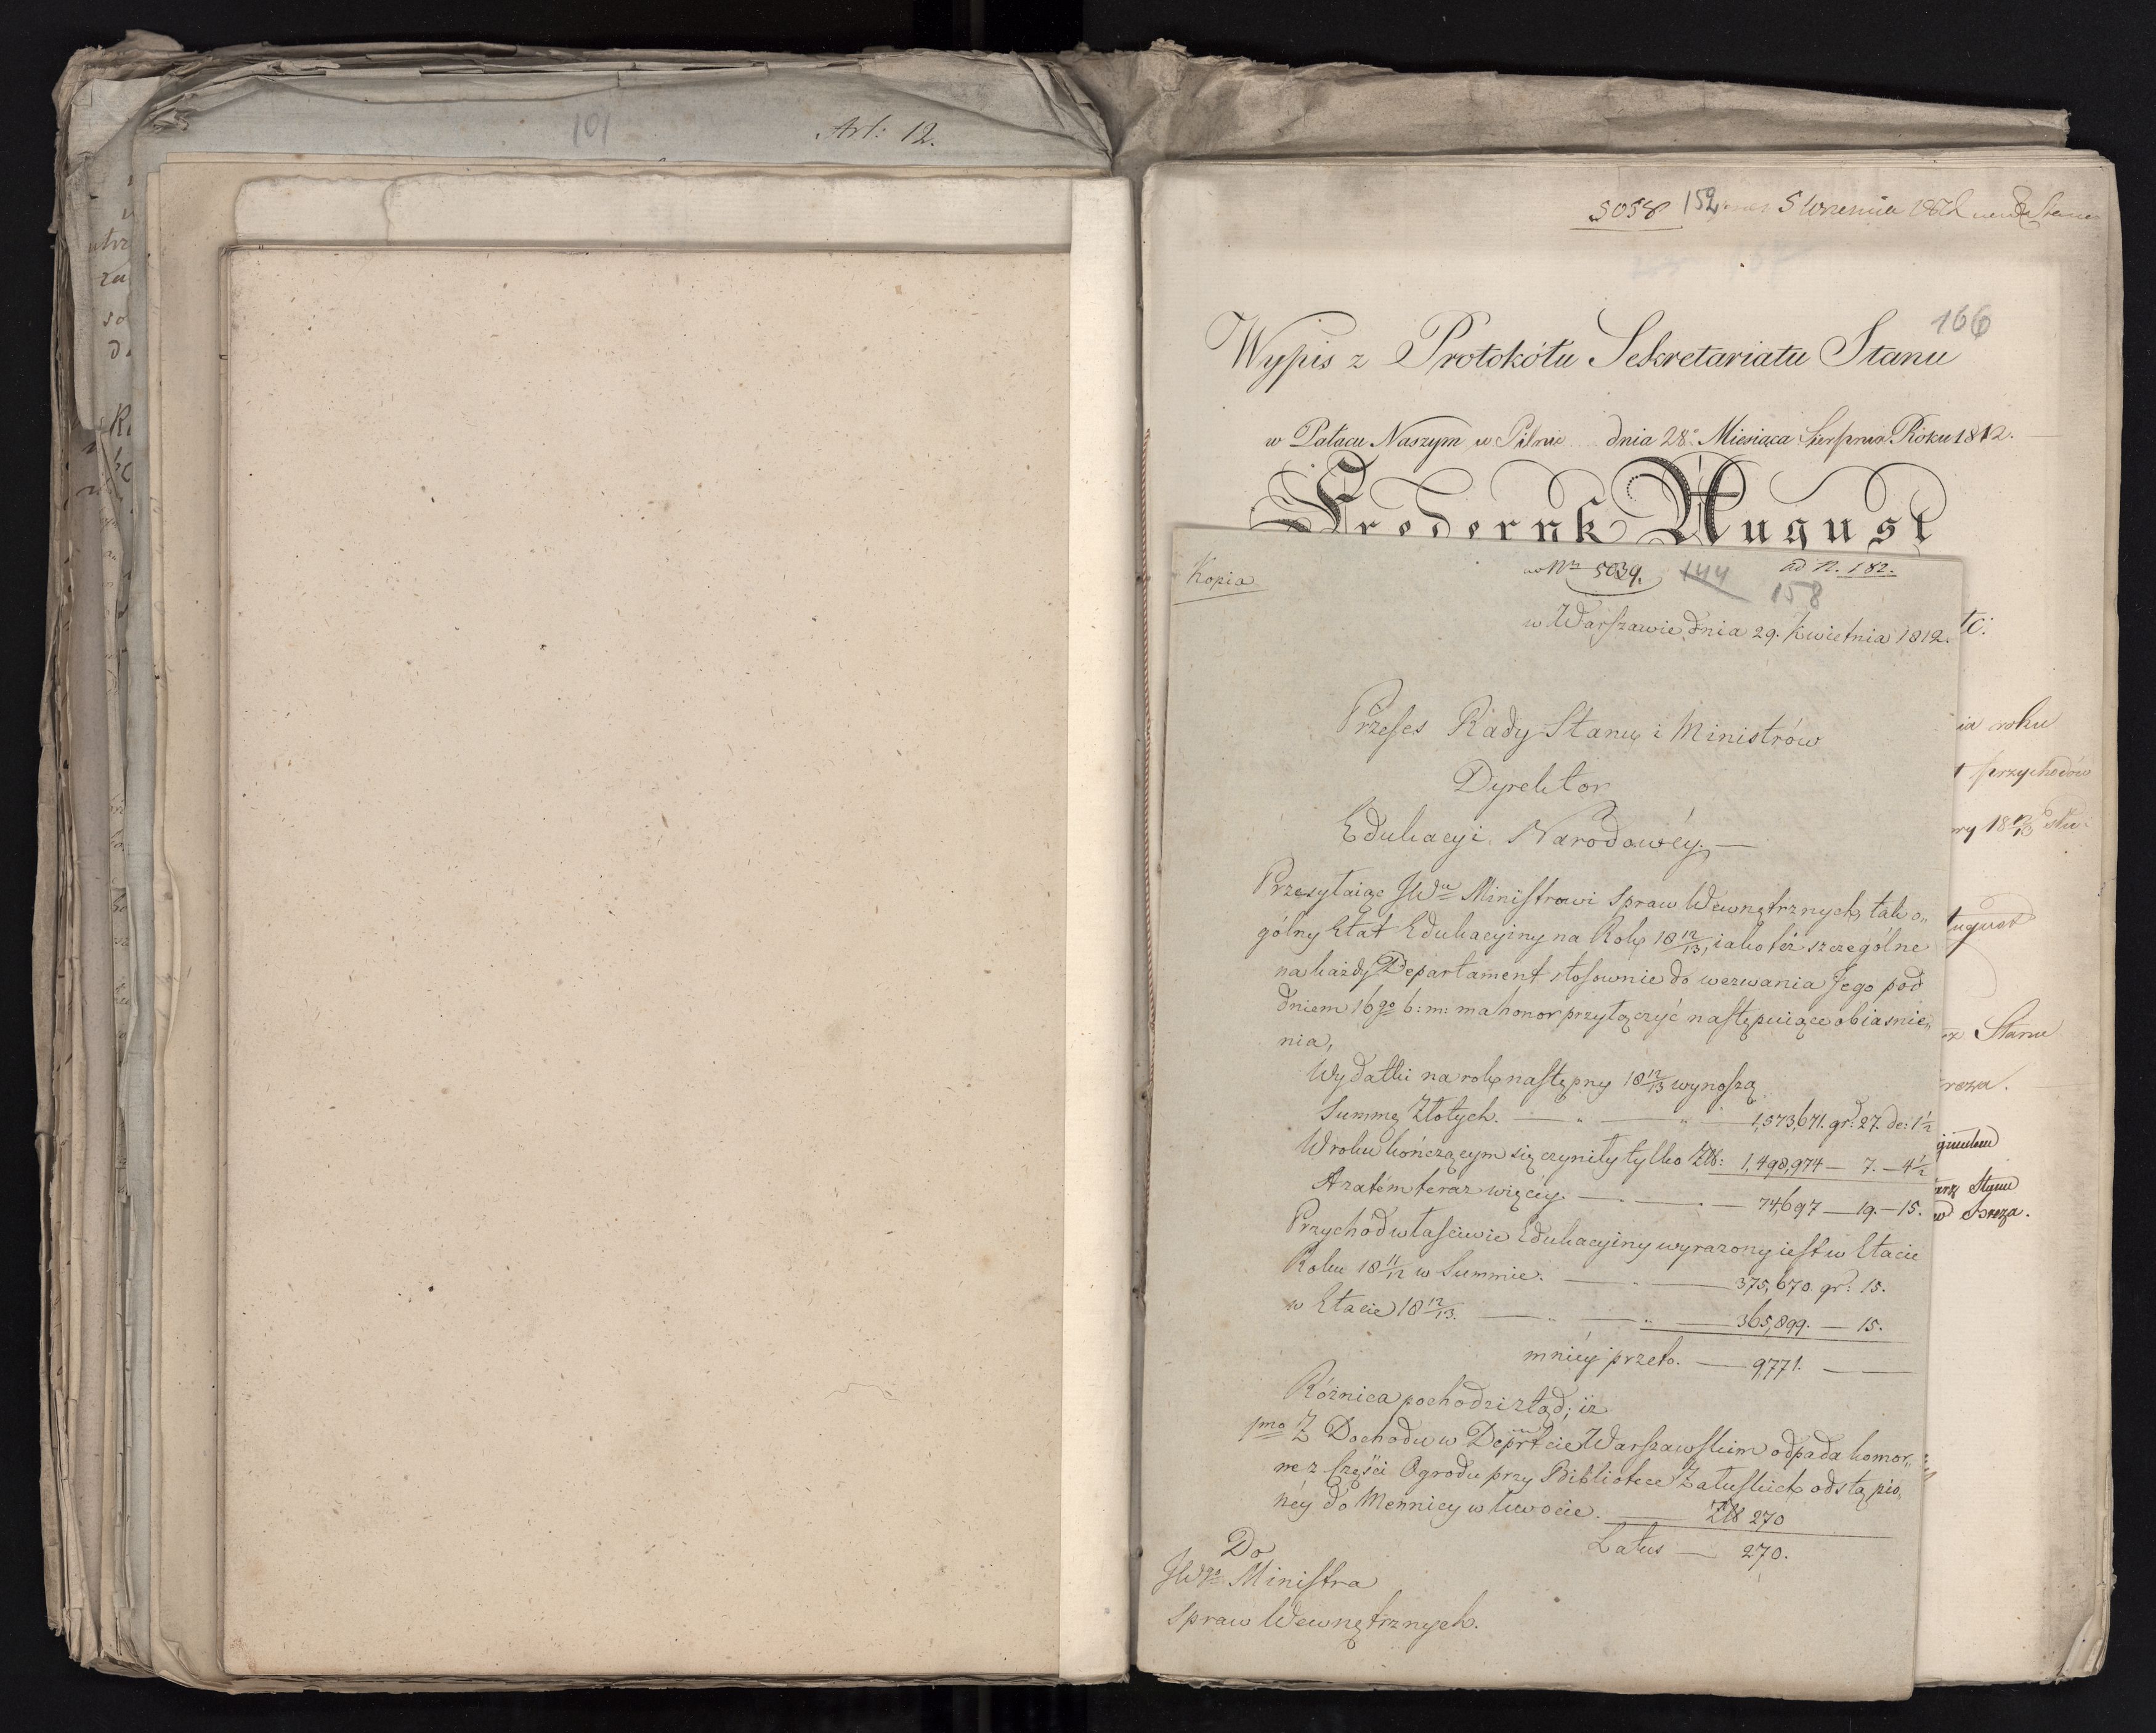 101
Art: 12.
5058 152 5 Września
166
Wypis z Protokółu Sekretariatu Stanu
w Pałacu Naszym w Pilnic dnia 28º Miesiąca Sierpnia Roku 1812.
Frederyk August
tc:
ia roku
t przychodów
ry 18 12/13
August
rz Stanu
reza.
arz Stanu
w Breza.
Kopia
ad Nr 5039. 144 ad N. 182.
158
w Warszawie dnia 29. Kwietnia 1812.
Prezes Rady Stanu i Ministrów
Dyrektor
Edukacyi Narodowéy. —
Przesyłaiąc JWu Ministrowi Spraw Wewnętrznych, tak o„
gólny Etat Edukacyiny na Rok 18 12/13, iako też szczególne
na każdy Departament stosownie do wezwania Jego pod
dniem 16go b: m: ma honor przyłączyć następuiące obiaśnie„
nia,
Wydatki na rok następny 18 12/13 wynoszą
Summę Złotych. — „ — „ — 1,573,671. gr: 27. de: 1½
W roku kończącym się czyniły tylko Złł: 1,498,974 — 7. — 4½
A zatém teraz więcey. — . — . — 74,697 — 19. — 15.
Przychod właściwie Edukacyiny wyrażony iest w Etacie
Roku 18 11/12 w Summie. — . — 375,670. gr: 15.
w Etacie 18 12/13. — „ — „ — 365,899. — 15.
mniéy przeto. — 9771. —
Różnica pochodzi ztąd; iż
pmo Z Dochodu w Deprtcie Warszawskim odpada komor„
ne z Części Ogrodu przy Bibliotece Załuskich odstąpio„
néy do Mennicy w kwocie. — Złł 270
Latus — 270.
Do
JWgo Ministra
Spraw Wewnętrznych.